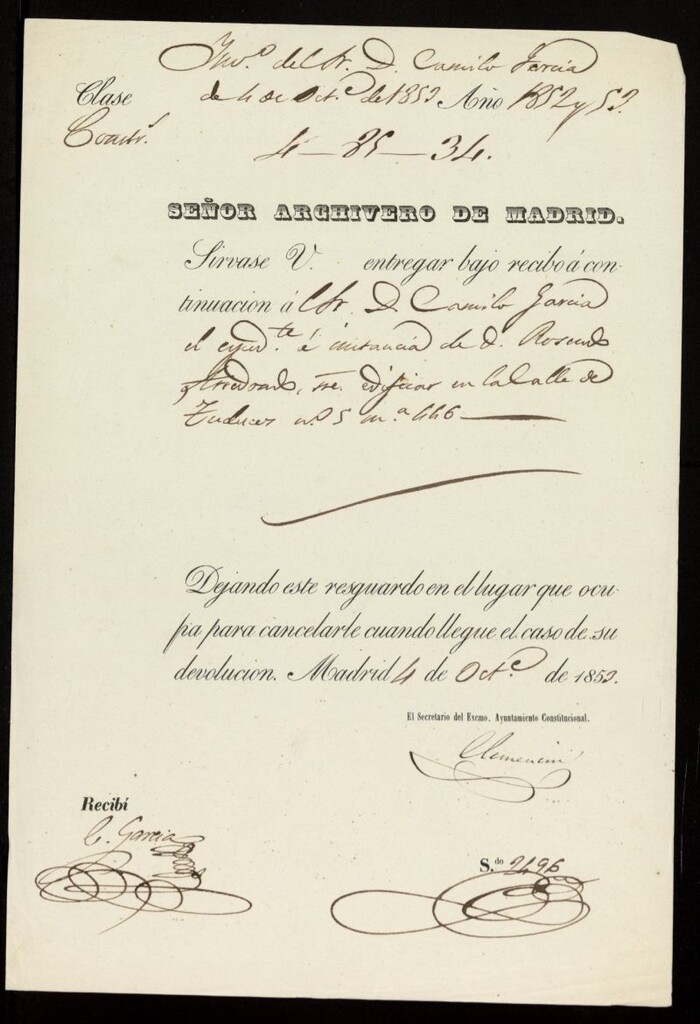 del Sr. D. Camilo Garcia
Clase de 4 de Oct.e de 1853 Año 1852 y 53.
Constr.
4-85-34.
SEÑOR ARCHIVERO DE MADRID.
Sirvase V. entregar bajo recibo á con-
tinuacion á l Sr. D. Camilo Garcia
el exped.te á instancia de D. Rosendo
edificar en la Calle de
n.º 5 m.a 446
Dejando este resguardo en el lugar que ocu-
pa para cancelarle cuando llegue el caso de su
devolucion. Madrid 4 de Oct.e de 1853.
El Secretario del Excmo. Ayuntamiento Constitucional.
Clemencin
Recibí
C. Garcia
S.do 2496